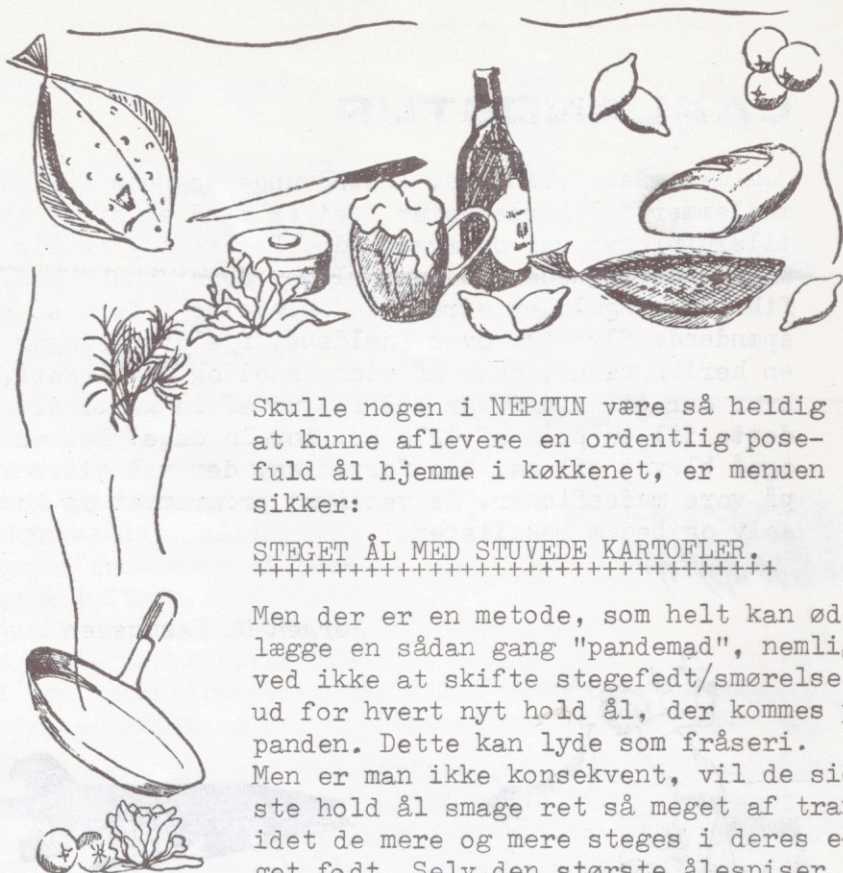 Skulle nogen i NEPTUN være så heldig
at kunne aflevere en ordentlig pose-
fuld ål hjemme i køkkenet, er menuen
sikker:
STEGET ÅL MED STUVEDE KARTOFLER.
++++++++++++++++++++++++++++++++
Men der er en metode, som helt kan ød
lægge en sådan gang "pandemad", nemlig
ved ikke at skifte stegefedt/smørelse
ud for hvert nyt hold ål, der kommes
panden. Dette kan lyde som fråseri.
Men er man ikke konsekvent, vil de sid
ste hold ål smage ret så meget af tran
idet de mere og mere steges i deres e-
get fedt. Selv den største ålespiser